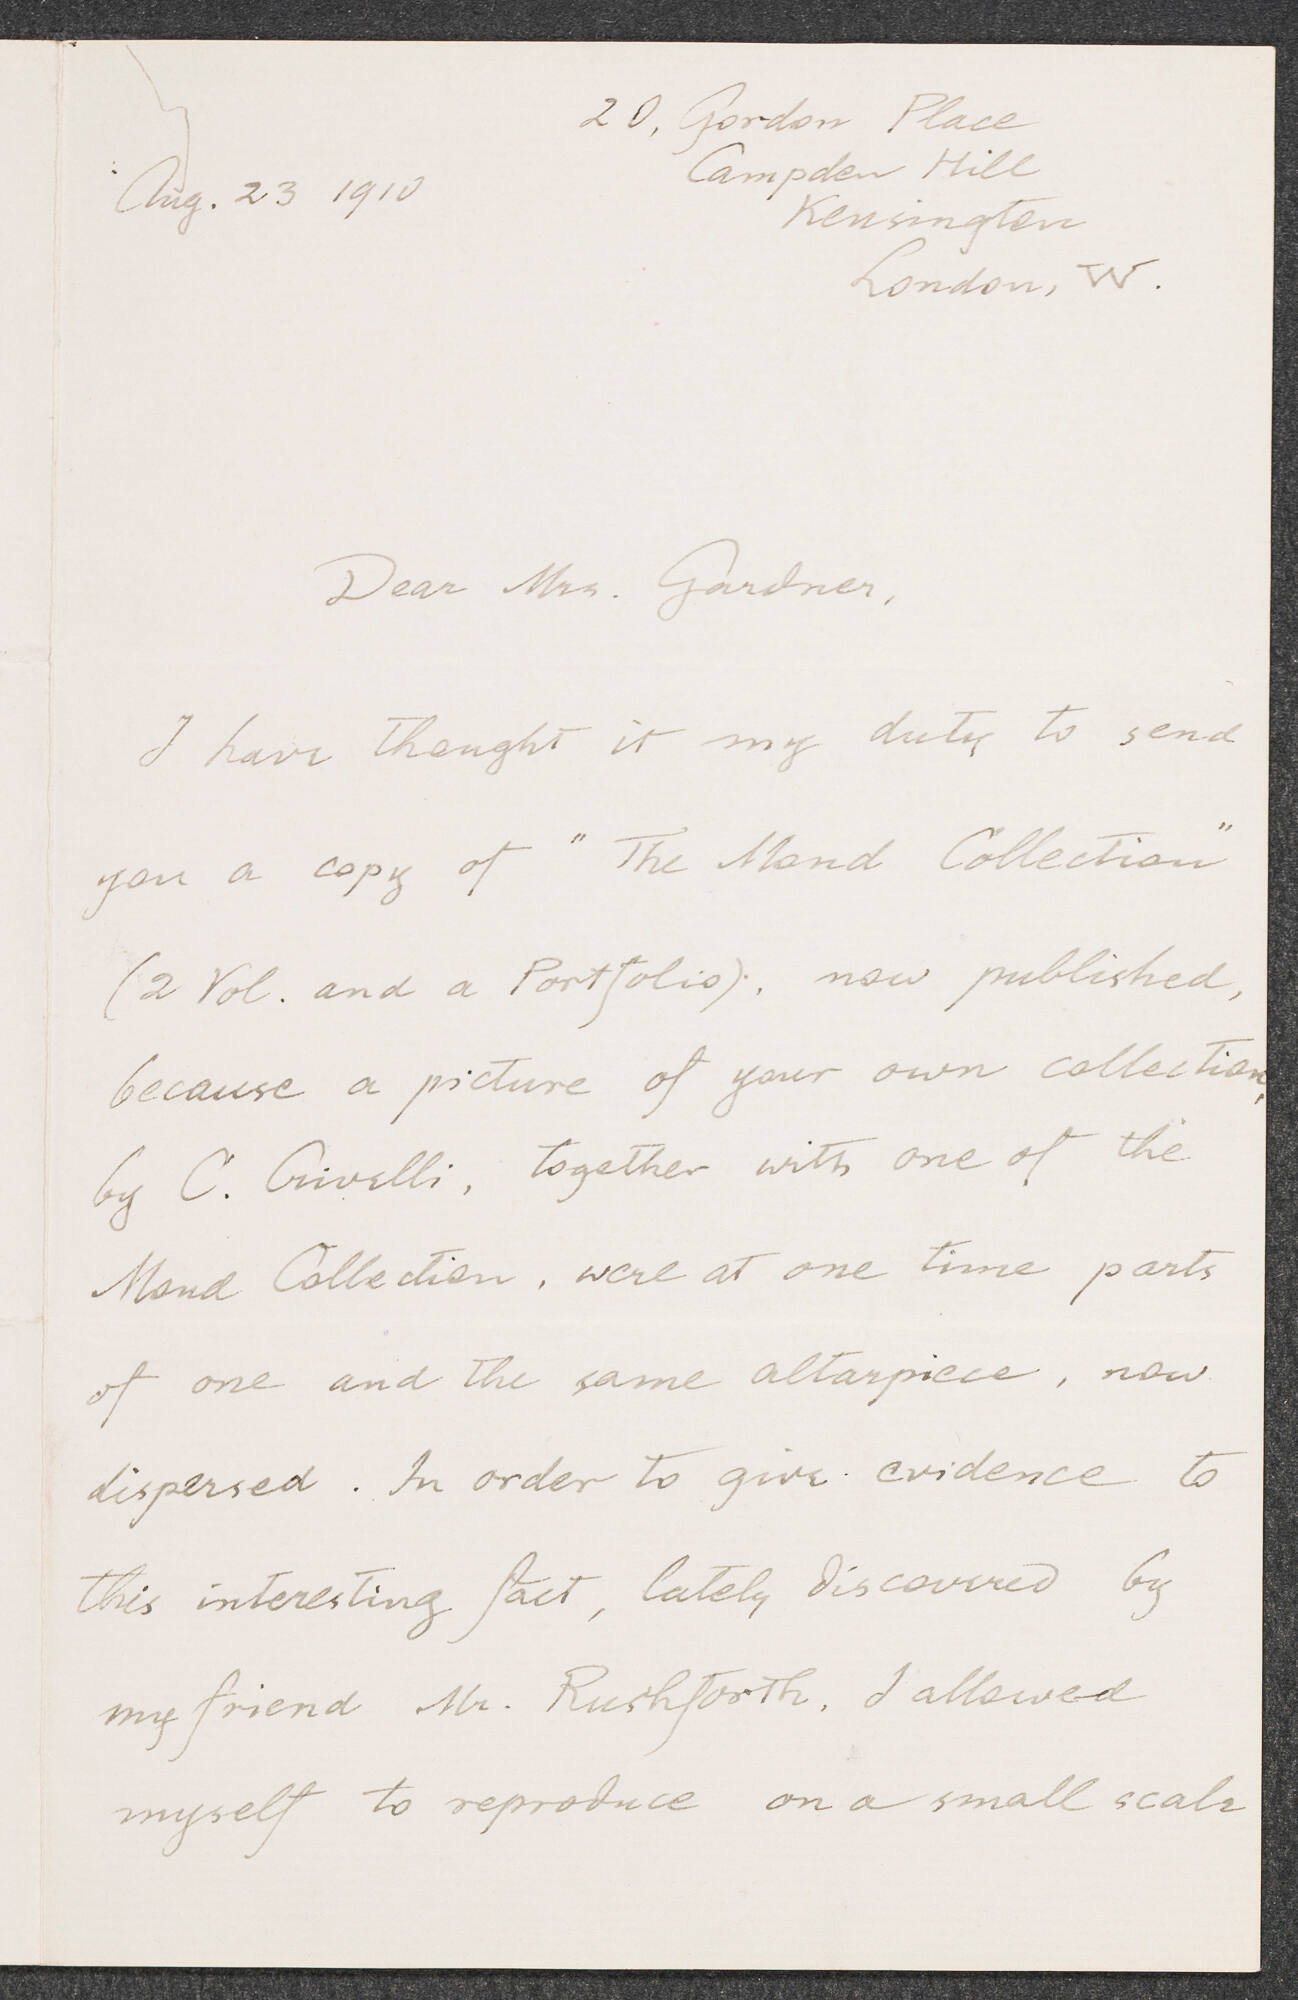 20, Gordon Place
Campden Hill
Kensington
London, W.
Aug. 23 1910
Dear Mrs. Gardner,
I have thought it my duty to send
you a copy of "The Mond Collection"
(2 Vol. and a Portfolio), now published,
because a picture of your own collection,
by C. Crivelli, together with one of the
Mond Collection, were at one time parts
of one and the same altarpiece, now
dispersed. In order to give evidence to
this interesting fact, lately discovered by
my friend Mr. Rushforth, I allowed
myself to reproduce on a small scale